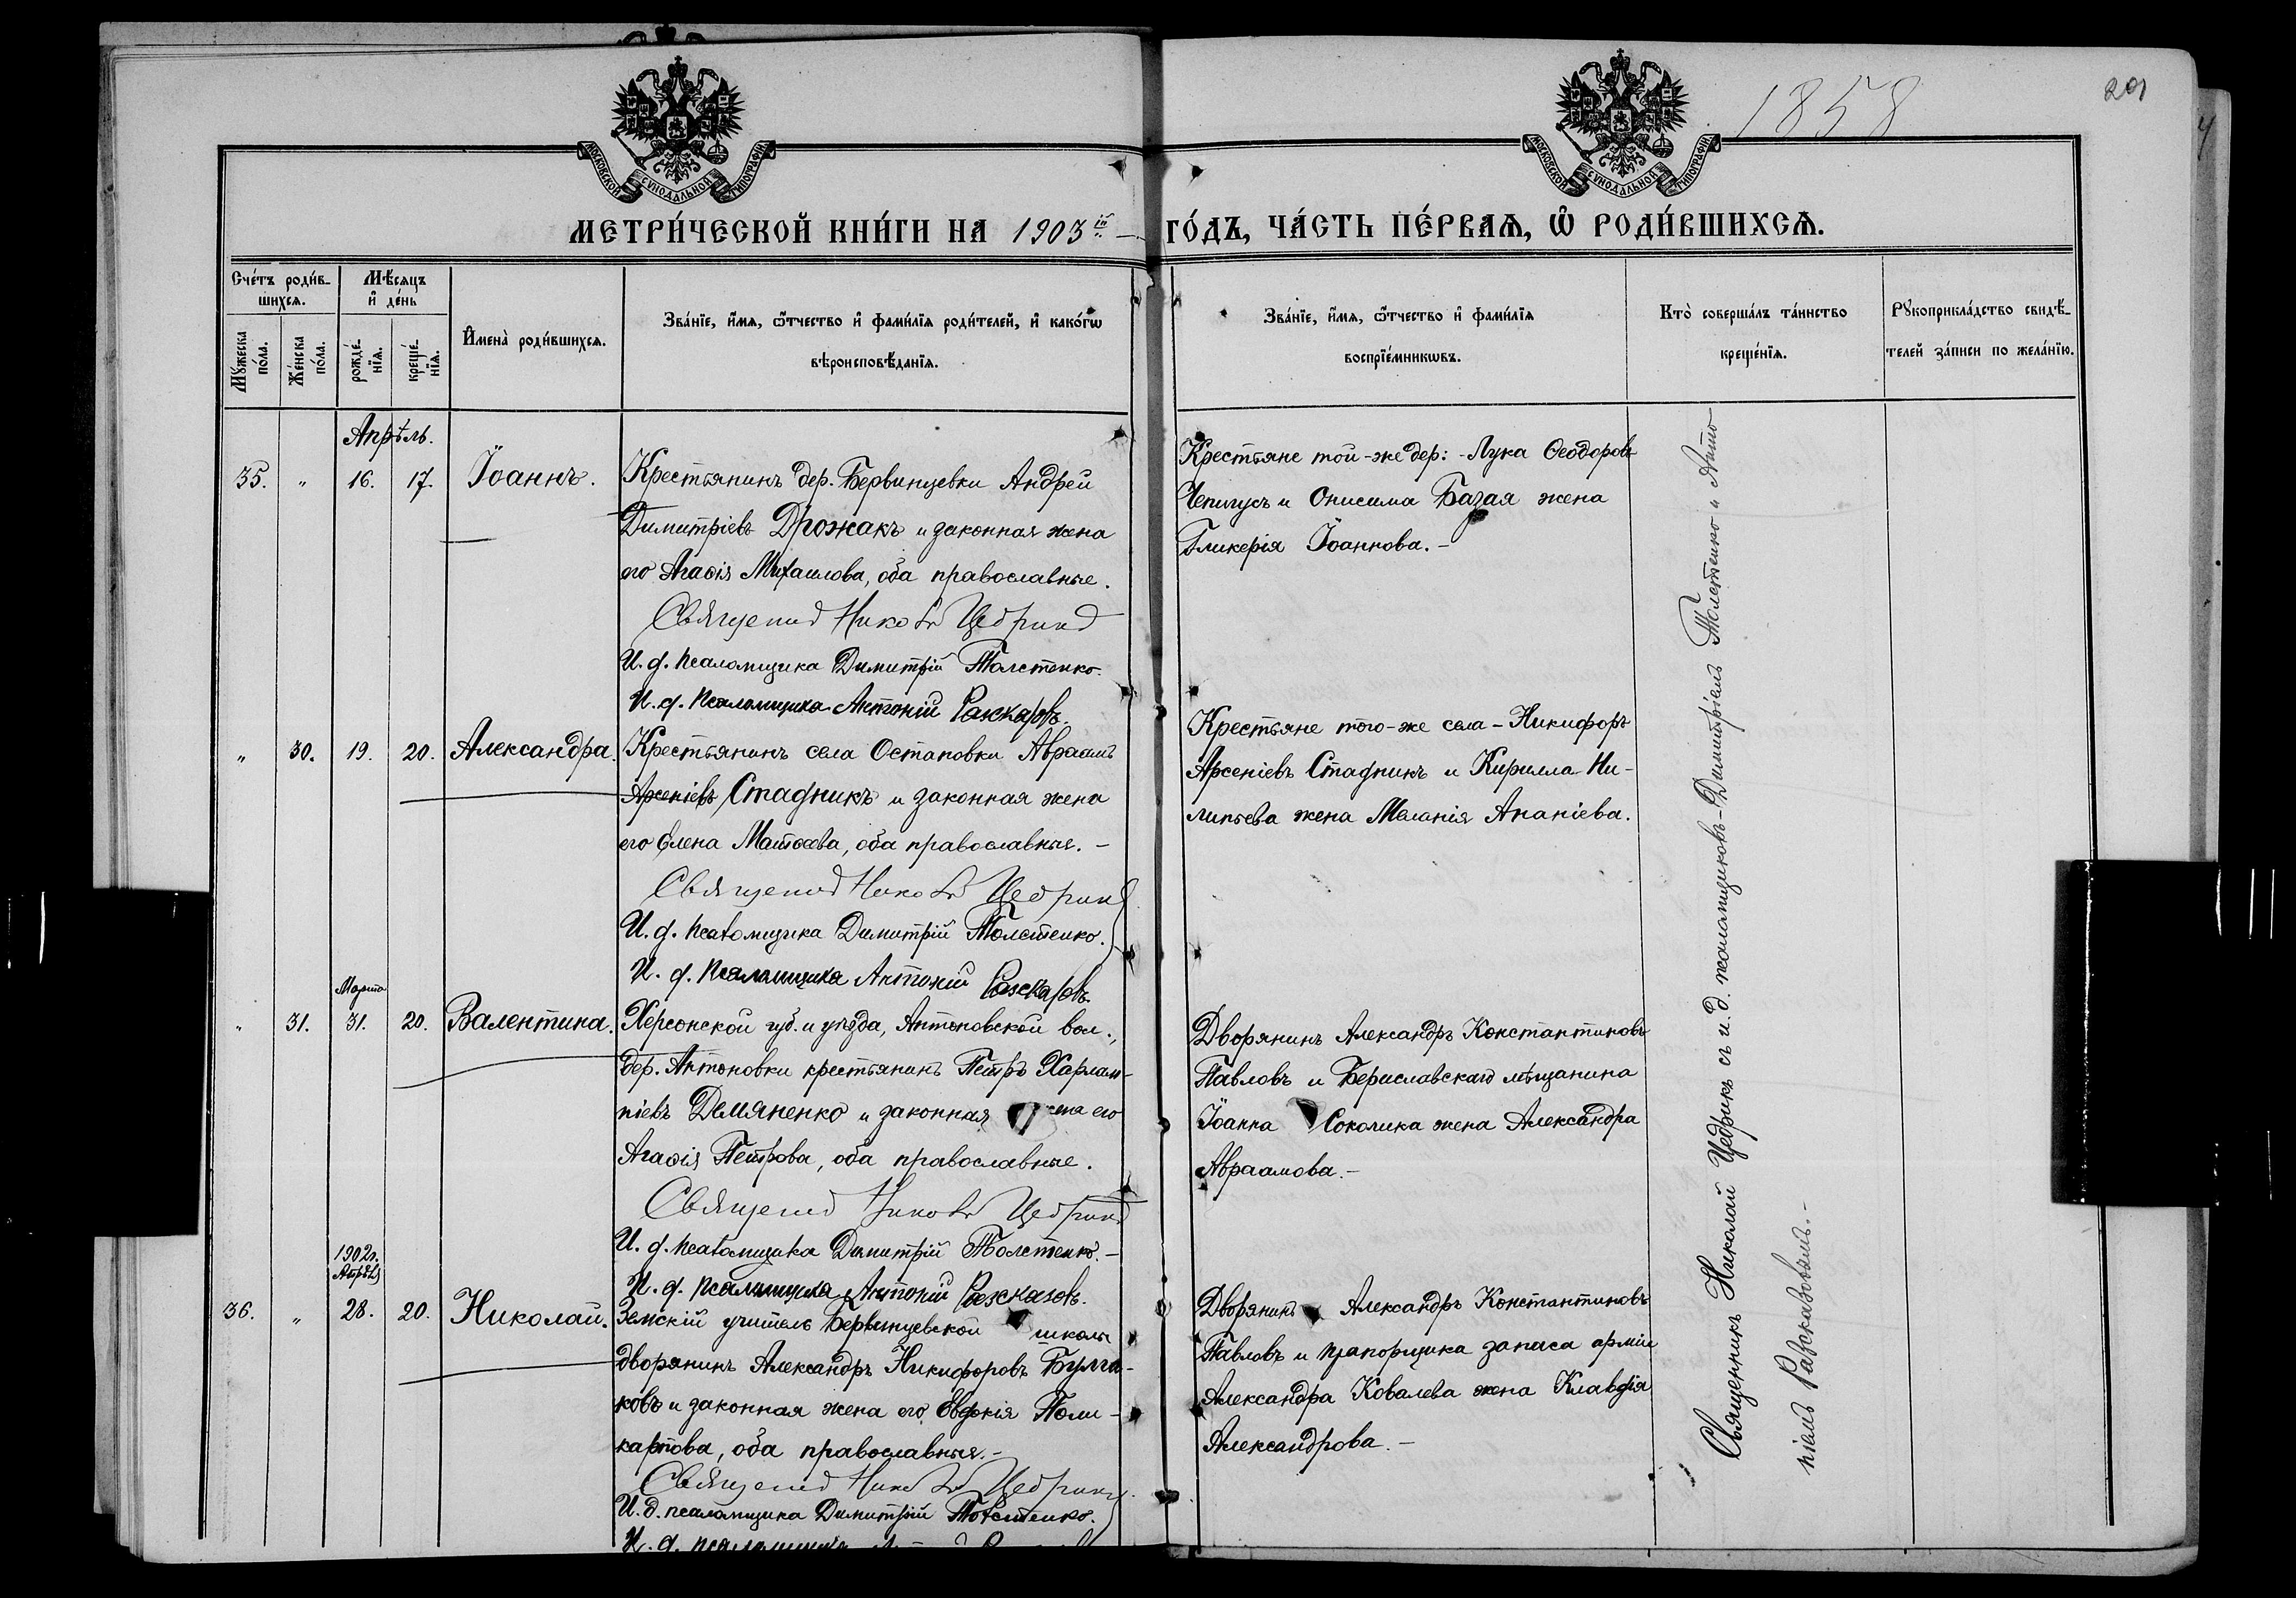 1858
29
МОСКОВСКОЙ СѴНОДАЛЬНОЙ ТИПОГРАФІИ
МОСКОВСКОЙ СѴНОДАЛЬНОЙ ТИПОГРАФІИ
МЕТРИ́ЧЕСКОЙ КНИ́ГИ НА 1903 й ГО́ДЪ, ЧА́СТЬ ПЕ́РВАѦ, Ѡ҆ РОДИ́ВШИХСѦ.
Сче́тъ роди́в-
шихсѧ.
Мꙋ́жеска
по́ла.
Же́нска
по́ла.
Мѣ́сѧцъ
и҆ де́нь
рожде́-
нїѧ.
креще́-
нїѧ.
И҆мена̀ роди́вшихсѧ.
Зва́нїе, и҆́мѧ, ѻ҆́тчество и҆ фами́лїѧ роди́телей, и҆ како́гѡ
вѣроисповѣ́данїѧ.
Зва́нїе, и҆́мѧ, ѻ҆́тчество и҆ фами́лїѧ
воспрїе́мникѡвъ.
Кто̀ соверша́лъ та́инство
креще́нїѧ.
Рꙋкоприкла́дство свидѣ́-
телей за́писи по жела́нїю.
Апрѣль.
35. " 16. 17. Іоаннъ.
Крестьянинъ дер. Бервинцевки Андрей
Димитріевъ Дрожакъ и законная жена
его Агаѳія Михаилова, оба православные.
Священник Никол Цедрик
И. д. псаломщика Димитрій Толстенко.
И. д. Псаломщика Антоній Разсказовъ.
Крестьяне той-же дер: - Лука Ѳеодоровъ
Чепигусъ и Онисима Базая жена
Гликерія Іоаннова. -
" 30. 19. 20. Александра.
Крестьянинъ села Остаповки Авраамъ
Арсеніевъ Стадникъ и законная жена
его Елена Матѳеева, оба православныя. -
Священник Никол Цедрик
И. д. псаломщика Димитрій Толстенко.
И. д. Псаломщика Антоній Разсказовъ.
Крестьяне того-же села - Никифоръ
Арсеніевъ Стадникъ и Кирилла
липьева жена Меланія Ананіева.
Марта
" 31. 31. 20. Валентина.
Херсонской губ. и уѣзда, Антоновской вол.,
дер. Антоновки крестьянинъ Петръ Харлам-
піевъ Демяненко и законная жена его
Агаѳія Петрова, оба православные.
Священник Никол Цедрик
И. д. псаломщика Димитрій Толстенко. -
И. д. псаломщика Антоній Разсказовъ.
Дворянинъ Александръ Константиновъ
Павловъ и Бериславскаго мѣщанина
Іоанна Соколика жена Александра
Авраамова. -
1902г.
Апрѣль
36. " 28. 20. Николай.
Земскій учитель Бервинцевской школы
дворянинъ Александръ Никифоровъ Булга-
ковъ и законная жена его Евдокія Поли-
карпова, оба православныя. -
Священник Никол Цедрик
И. д. псаломщика Димитрій Толстенко.
И. д. псаломщика
Дворянинъ Александръ Константиновъ
Павловъ и прапорщика запаса арміи
Александра Ковалева жена Клавдія
Александрова. -
Священникъ Николай Цедрикъ съ и. д. псаломщиковъ - Димитріемъ Толстенко и Анто
ніемъ Разсказовымъ. -